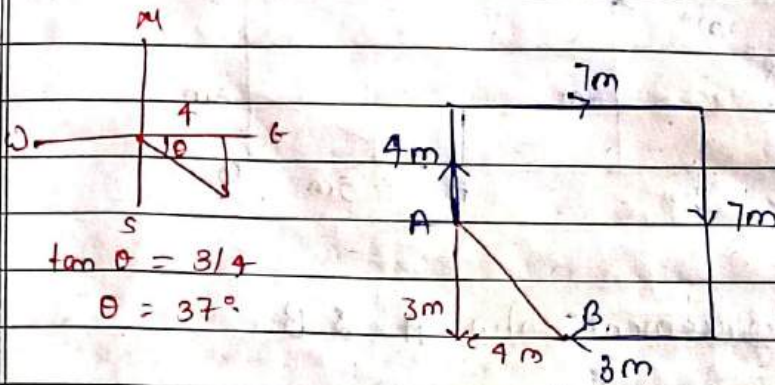 N
4
W
E
θ
S
tan θ = 3/4
θ = 37°
7m
4m
A
7m
3m
4m
B.
3m